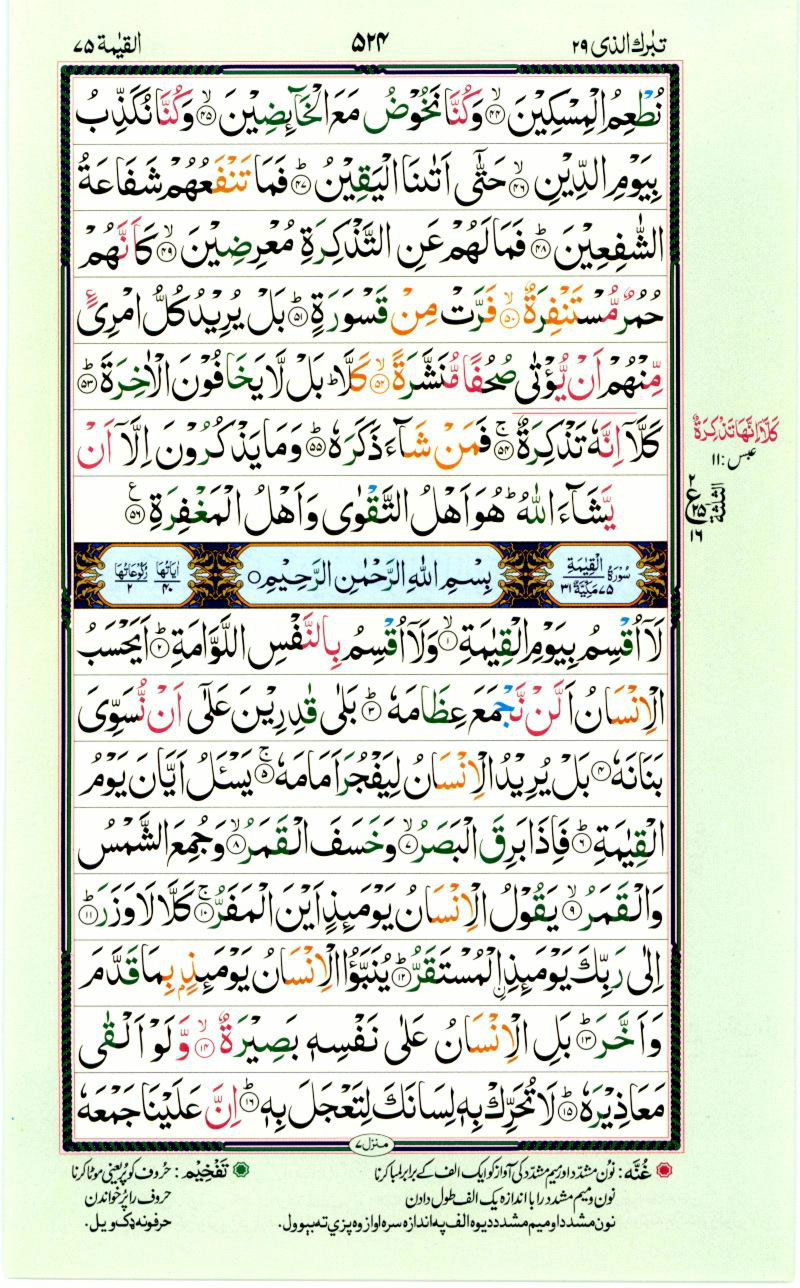 تبٰرك الذى ٢٩
٥٢٤
القيٰمة ٧٥
نُطۡعِمُ الۡمِسۡكِيۡنَ ۙ‏﴿۴۴﴾ وَكُنَّا نَخُوۡضُ مَعَ الۡخَآئِضِيۡنَ ۙ‏﴿۴۵﴾ وَكُنَّا نُكَذِّبُ
بِيَوۡمِ الدِّيۡنِ ۙ‏﴿۴۶﴾ حَتّٰٓى اَتٰٮنَا الۡيَقِيۡنُ ؕ‏﴿۴۷﴾ فَمَا تَنۡفَعُهُمۡ شَفَاعَةُ
الشّٰفِعِيۡنَ ؕ‏﴿۴۸﴾ فَمَا لَهُمۡ عَنِ التَّذۡكِرَةِ مُعۡرِضِيۡنَ ۙ‏﴿۴۹﴾ كَاَنَّهُمۡ
حُمُرٌ مُّسۡتَنۡفِرَةٌ ۙ‏﴿۵۰﴾ فَرَّتۡ مِنۡ قَسۡوَرَةٍ ؕ‏﴿۵۱﴾ بَلۡ يُرِيۡدُ كُلُّ امۡرِىٴٍ
مِّنۡهُمۡ اَنۡ يُّؤۡتٰى صُحُفًا مُّنَشَّرَةً ۙ‏﴿۵۲﴾ كَلَّا ؕ بَلۡ لَّا يَخَافُوۡنَ الۡاٰخِرَةَ ؕ‏﴿۵۳﴾
كَلَّاۤ اِنَّهٗ تَذۡكِرَةٌ ۚ‏﴿۵۴﴾ فَمَنۡ شَآءَ ذَكَرَهٗ ؕ‏﴿۵۵﴾ وَمَا يَذۡكُرُوۡنَ اِلَّاۤ اَنۡ
كَلَّاۤ اِنَّهَا تَذۡكِرَةٌ
عبس : ١١
يَّشَآءَ اللّٰهُ ؕ هُوَ اَهۡلُ التَّقۡوٰى وَاَهۡلُ الۡمَغۡفِرَةِ ‏﴿۵۶﴾ ع
٢
ع ٢٥
الثلثة
١٦
سُوۡرَةُ الۡقِيٰمَةِ ٧٥ مَكِّيَّةٌ ٣١
بِسۡمِ اللّٰهِ الرَّحۡمٰنِ الرَّحِيۡمِ ○
اٰيَاتُهَا ٤٠ رُكُوۡعَاتُهَا ٢
لَاۤ اُقۡسِمُ بِيَوۡمِ الۡقِيٰمَةِ ۙ‏﴿۱﴾ وَلَاۤ اُقۡسِمُ بِالنَّفۡسِ اللَّوَّامَةِ ؕ‏﴿۲﴾ اَيَحۡسَبُ
الۡاِنۡسَانُ اَلَّنۡ نَّجۡمَعَ عِظَامَهٗ ؕ‏﴿۳﴾ بَلٰى قٰدِرِيۡنَ عَلٰٓى اَنۡ نُّسَوِّىَ
بَنَانَهٗ‏﴿۴﴾ بَلۡ يُرِيۡدُ الۡاِنۡسَانُ لِيَفۡجُرَ اَمَامَهٗ ۚ‏﴿۵﴾ يَسۡـَٔـلُ اَيَّانَ يَوۡمُ
الۡقِيٰمَةِ ؕ‏﴿۶﴾ فَاِذَا بَرِقَ الۡبَصَرُ ۙ‏﴿۷﴾ وَخَسَفَ الۡقَمَرُ ۙ‏﴿۸﴾ وَجُمِعَ الشَّمۡسُ
وَالۡقَمَرُ ۙ‏﴿۹﴾ يَقُوۡلُ الۡاِنۡسَانُ يَوۡمَٮِٕذٍ اَيۡنَ الۡمَفَرُّ ۚ‏﴿۱۰﴾ كَلَّا لَا وَزَرَ ؕ‏﴿۱۱﴾
اِلٰى رَبِّكَ يَوۡمَٮِٕذِ ۨالۡمُسۡتَقَرُّ ؕ‏﴿۱۲﴾ يُنَبَّؤُا الۡاِنۡسَانُ يَوۡمَٮِٕذٍۢ بِمَا قَدَّمَ
وَاَخَّرَ ؕ‏﴿۱۳﴾ بَلِ الۡاِنۡسَانُ عَلٰى نَفۡسِهٖ بَصِيۡرَةٌ ۙ‏﴿۱۴﴾ وَّلَوۡ اَلۡقٰى
مَعَاذِيۡرَهٗ ؕ‏﴿۱۵﴾ لَا تُحَرِّكۡ بِهٖ لِسَانَكَ لِتَعۡجَلَ بِهٖ ؕ‏﴿۱۶﴾ اِنَّ عَلَيۡنَا جَمۡعَهٗ
منزل ٧
غُنَّه : نون مشدد اور میم مشدد کی آواز کو ایک الف کے برابر لمبا کرنا
نون و میم مشدد را با اندازه یک الف طول دادن
نون مشدد او میم مشدد دیوه الف په اندازه سره اواز وه پزی ته بېوول.
تَفْخِیْم : حروف کو پُر یعنی موٹا کرنا
حروف را پُر خواندن
حرفونه ډک ویل.